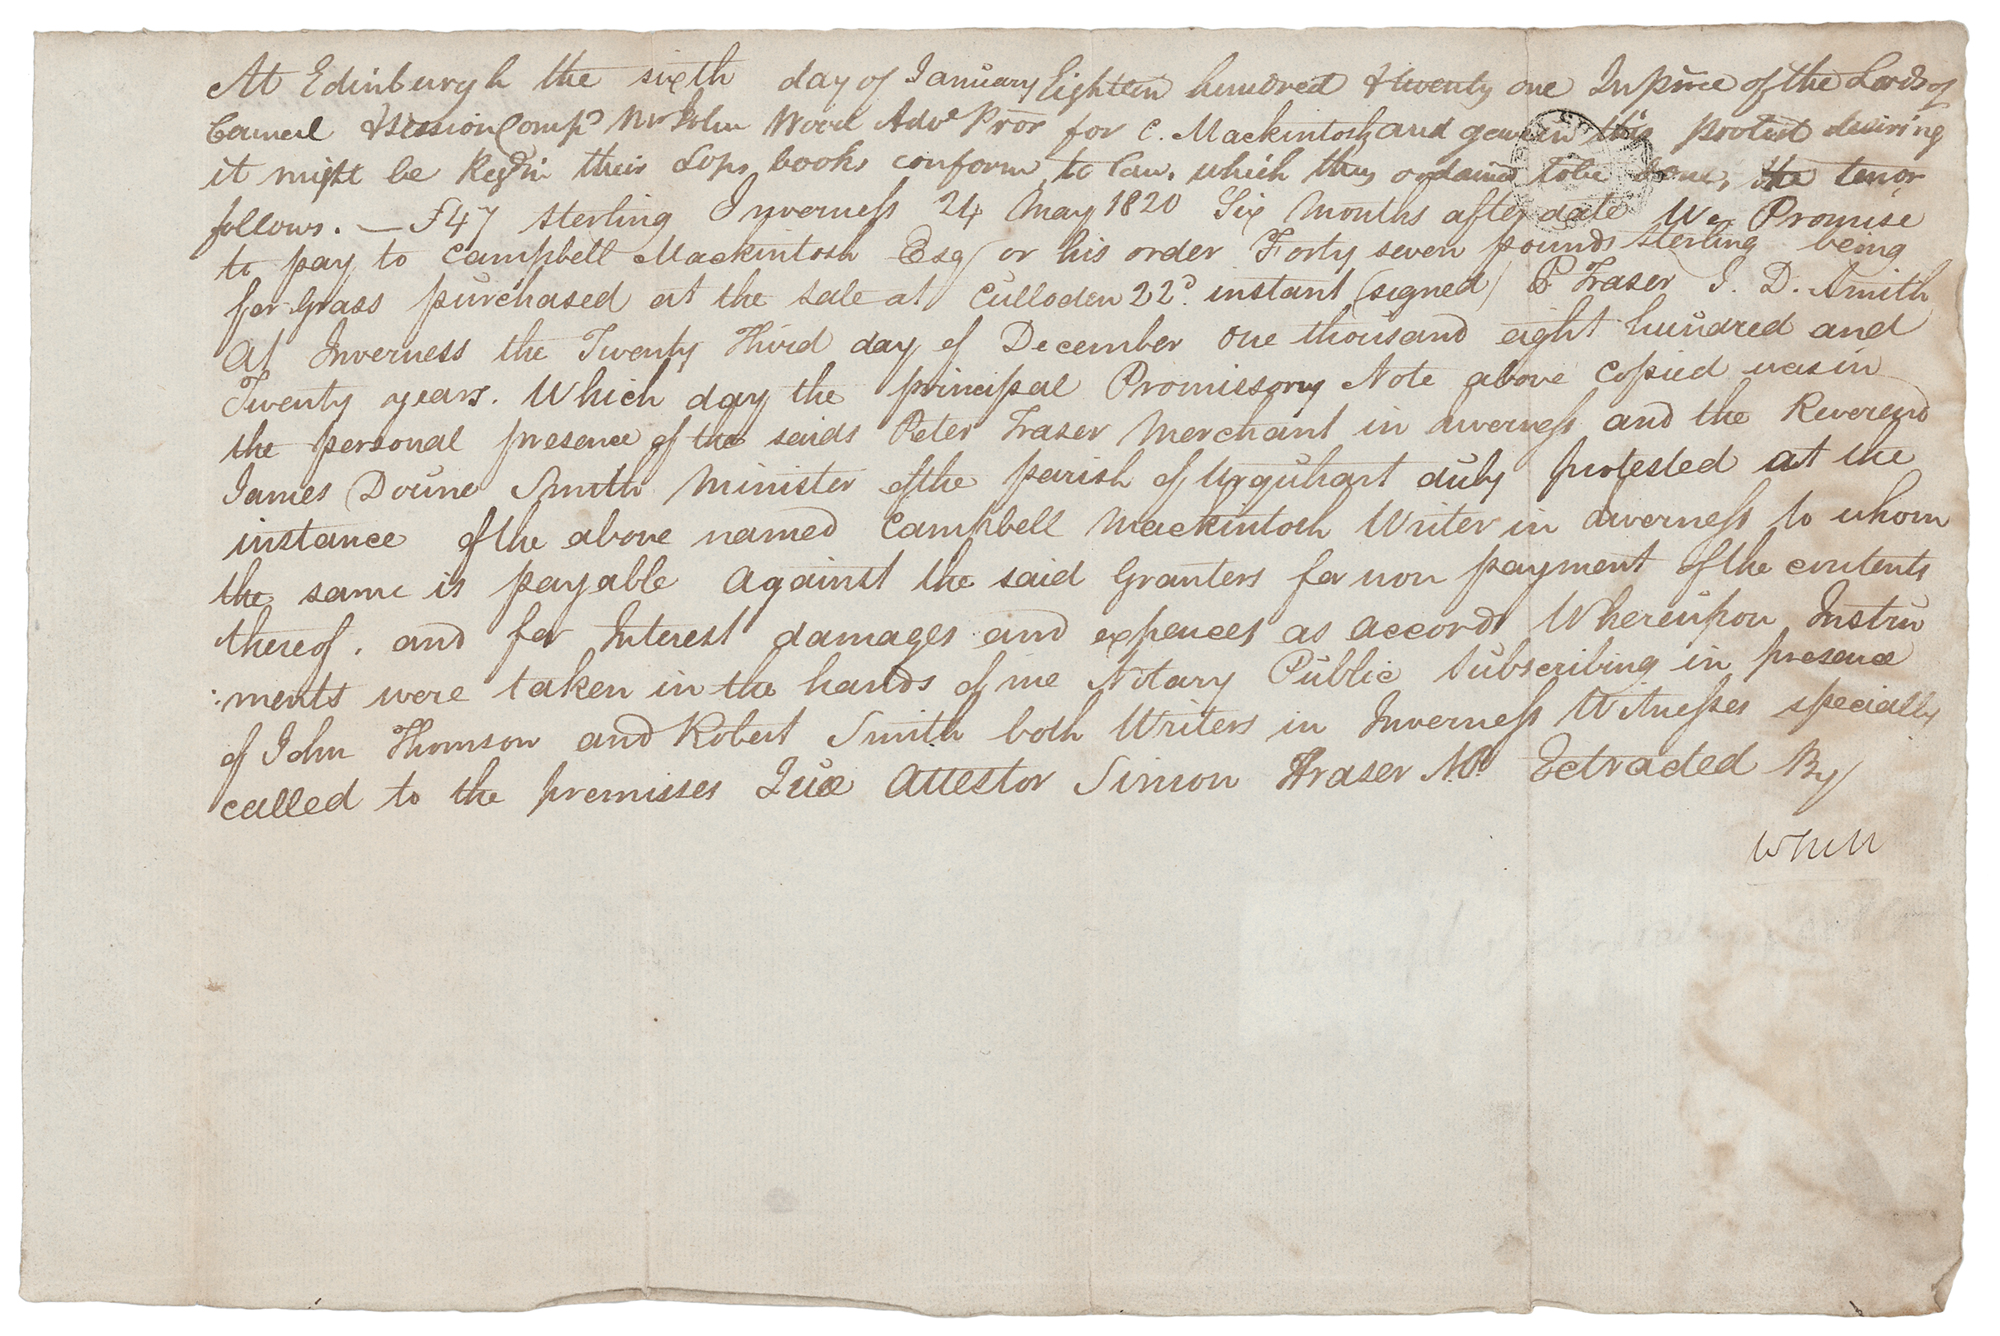 At Edinburgh the sixth day of January Eighteen hundred & twenty one In p̄nce of the Lords of
Council & Session Compd Mr John Wood Adve Pror for C. Mackintosh and gave in this protest desiring
it might be Regd in their Lops books conform to Law, which they ordained to be done, the tenor
follows. — £47 sterling Inverness 24 May 1820 Six Months after date We Promise
to pay to Campbell Mackintosh Esq or his order Forty seven pounds sterling being
for Grass purchased at the sale at Culloden 22d. instant (signed) P Fraser J. D. Smith
At Inverness the Twenty Third day of December one thousand eight hundred and
Twenty years. Which day the principal Promissory Note above copied was in
the personal presence of the saids Peter Fraser Merchant in Inverness and the Reverend
James Doune Smith Minister of the parish of Urquhart duly protested at the
instance of the above named Campbell Mackintosh Writer in Inverness to whom
the same is payable Against the said Granters for non payment of the contents
thereof. and for Interest damages and expences as accords Whereupon Instru
:ments were taken in the hands of me Notary Public Subscribing in presence
of John Thomson and Robert Smith both Writers in Inverness Witnesses specially
called to the premisses Quæ Attestor Simon Fraser NP. Extracted By